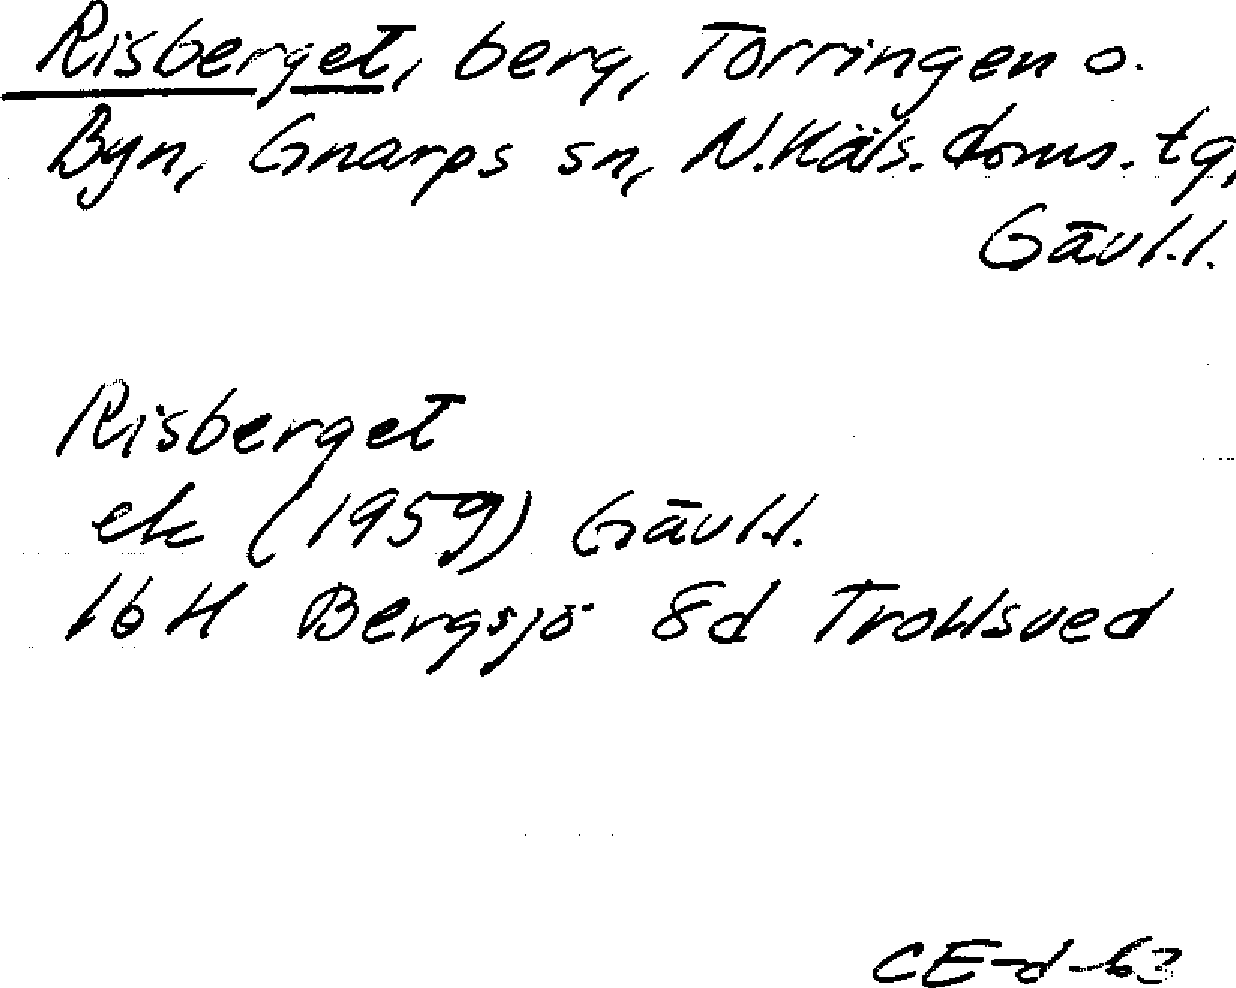 Risberget, berg, Torringen o.
Byn, Gnarps sn, N. Häls. doms. tg,
Gävl.l.
Risberget
ek (1959) Gävl.l.
16 H Bergsjö 8d Trollsved
CE-d-63